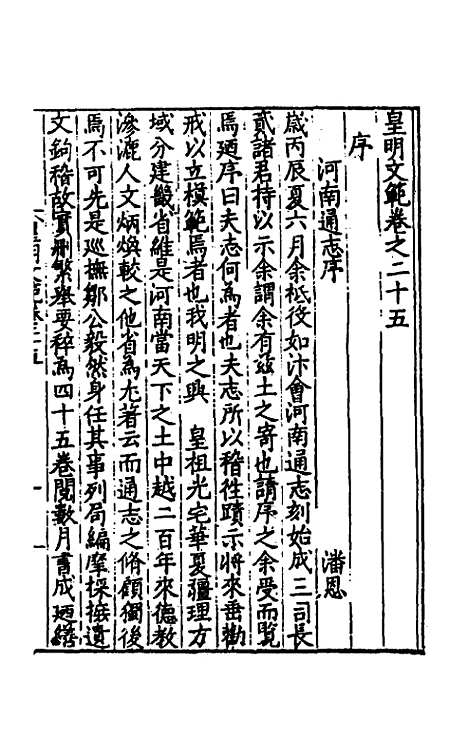 皇明文範卷之二十五
序
河南通志序 潘恩
歲丙辰夏六月余祗役如汴會河南通志刻始成三司長
貳諸君持以示余謂余有茲土之寄也請序之余受而覽
焉廼序曰夫志何為者也夫志所以稽徃蹟示將來垂勸
戒以立模範焉者也我明之興 皇祖光宅華夏疆理方
域分建畿省維是河南當天下之土中越二百年來德教
滲漉人文炳煥較之他省為尤著云而通志之脩顧獨後
焉不可先是巡撫鄒公毅然身任其事列局編摩採摭遺
文鉤稽故實刪繁舉要稡為四十五卷閱數月書成廼繕